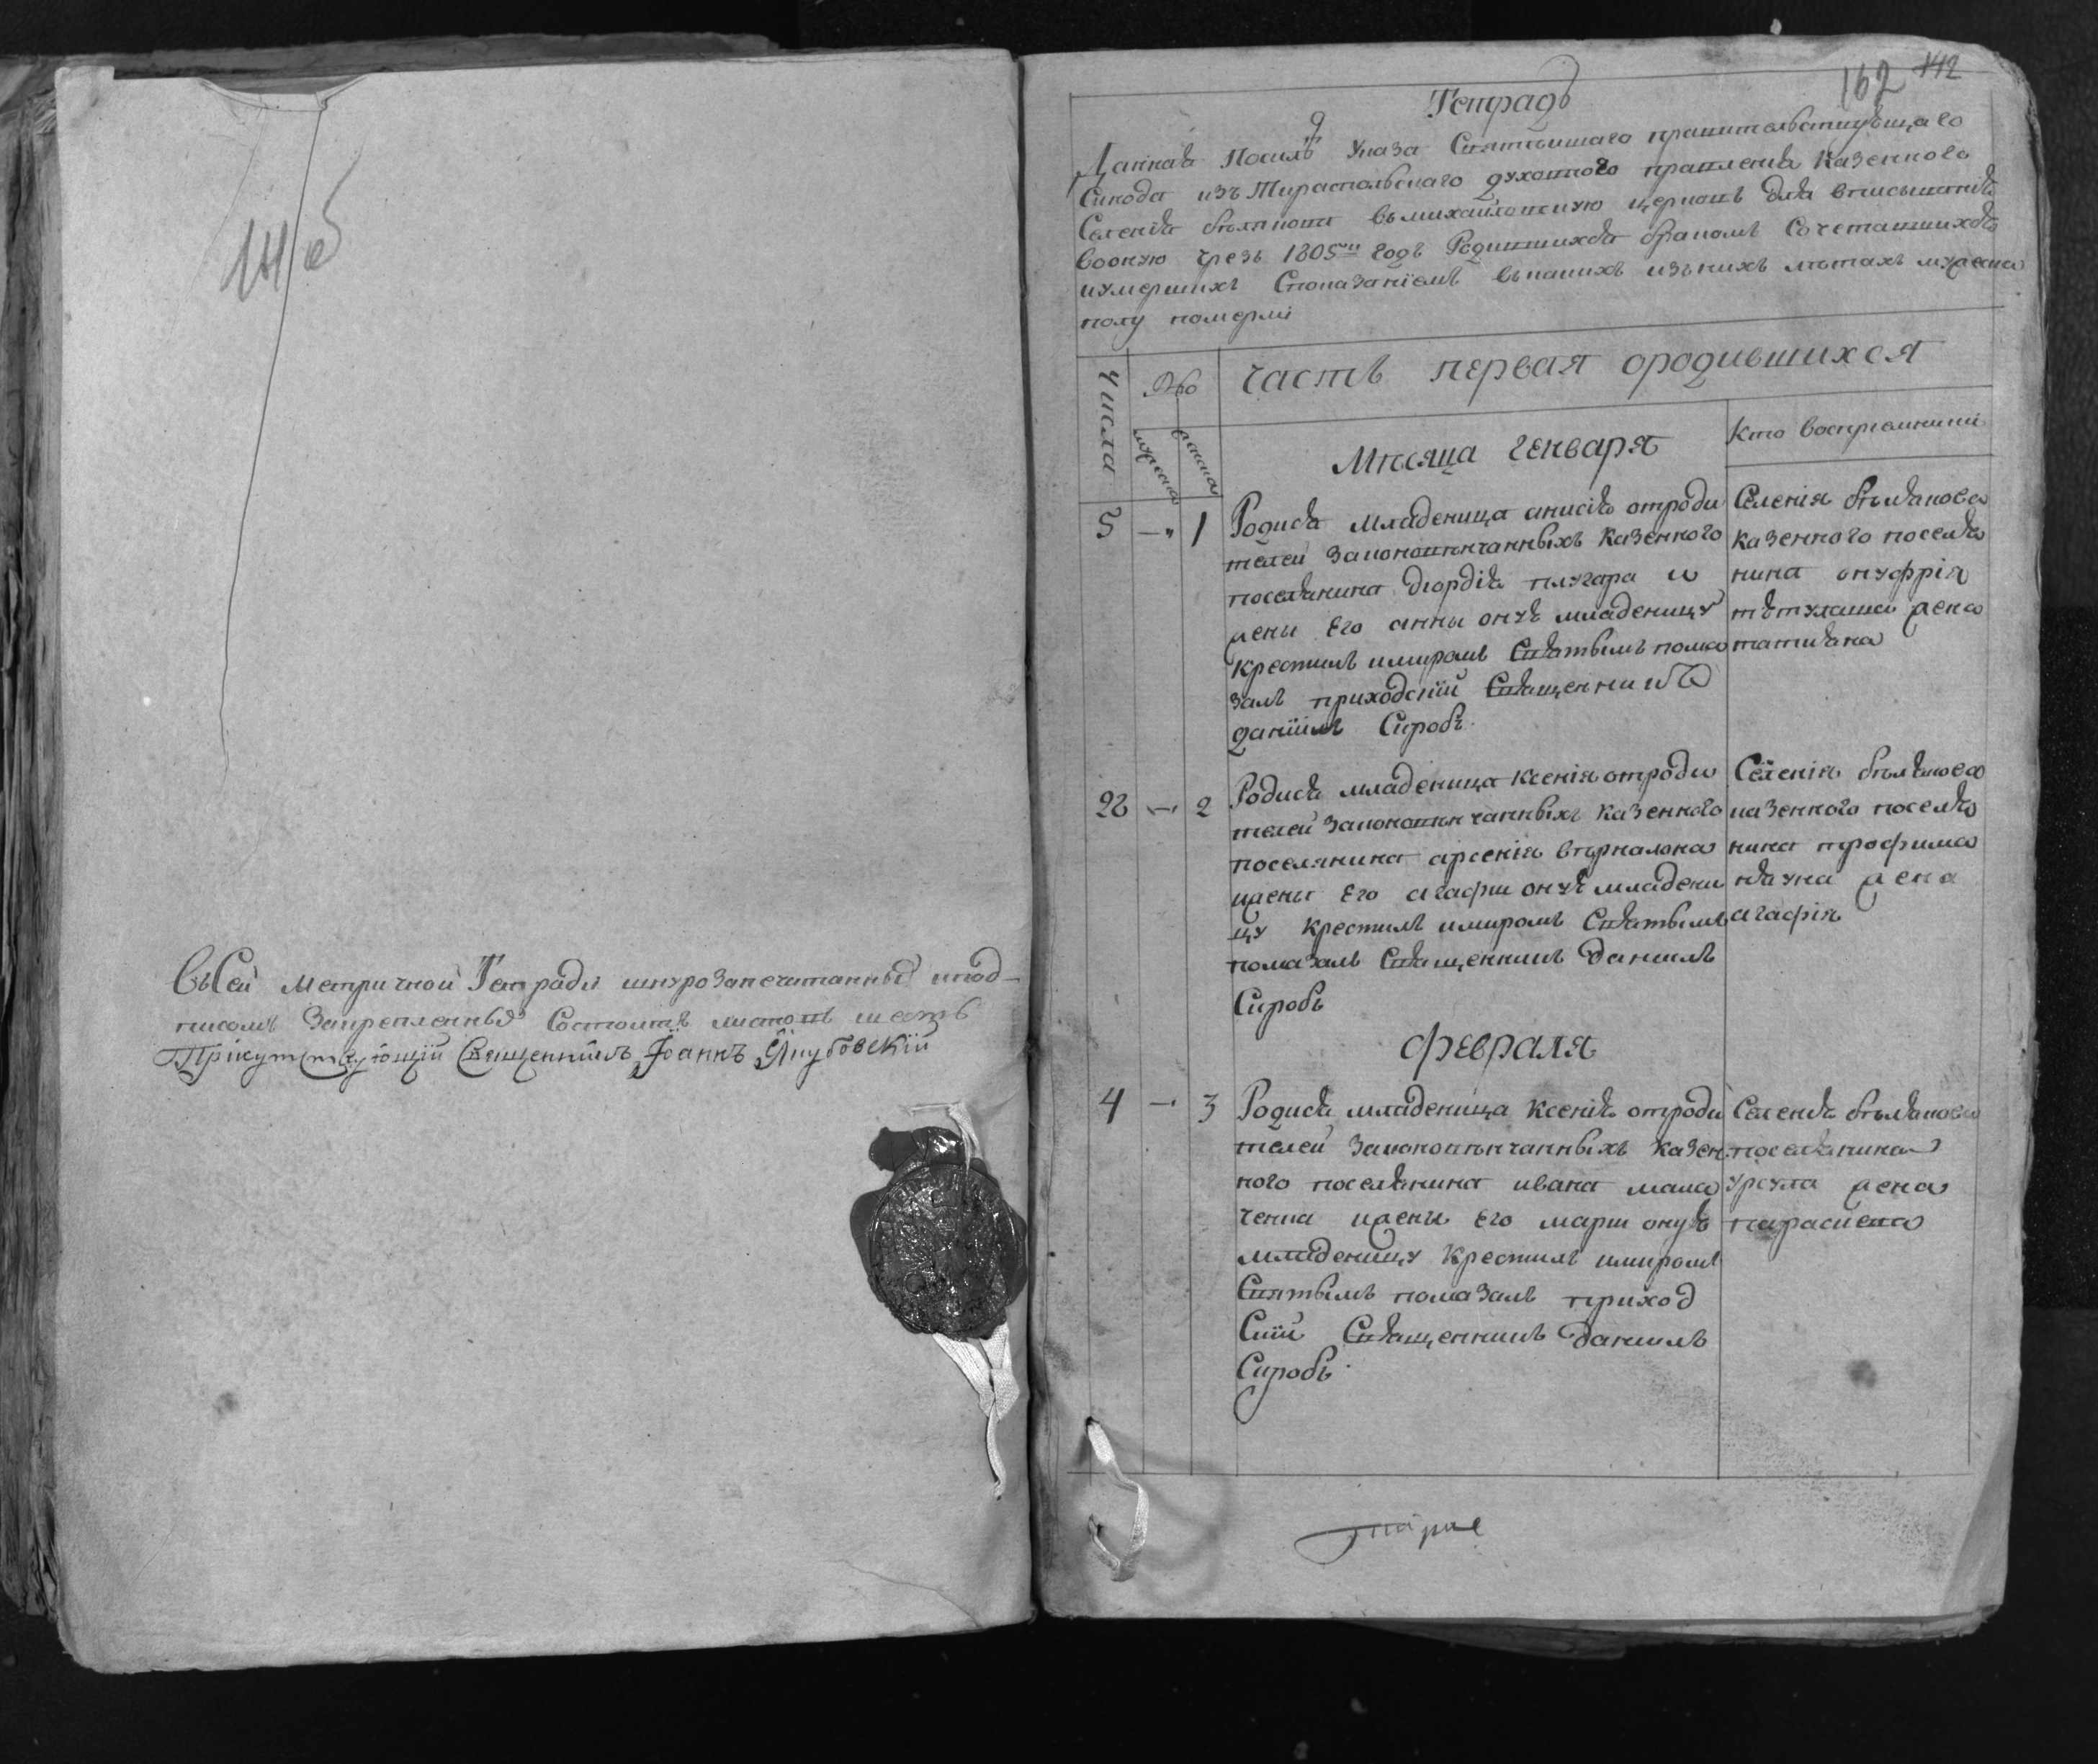 141 об
Въ Сей Метричной Тетради шнурозапечатанныѣ иъпод-
писомъ Закрепленныѣ Состоитъ листовъ шесть
Присутствующїй Священникъ Іоаннъ Якубовскїй
162 142
Тетрадь
Данная Посилѣ Указа Святѣишаго правителствующаго
Синода изъ Тираспольскаго духовного правления Казенного
Селения бѣляновки въ михайловскую церковь для вписывания
Вооную чрезъ 1805ый годъ Родившихся бракомъ Сочетавшихся
иумершихъ Споказанїемъ въкакихъ изънихъ лѣтахъ мужеска
полу померлі
Числа
№
мужеска
женска
часть первая ородившихся
Мѣсяца генваря
Кто восприемники
5 — 1
Родися младеница анисія отроди
телей Законовѣнчанныхъ Казенного
поселянина діордія плугара и
жены его анны онуѣ младеницу
крестилъ имиромъ Святымъ пома
залъ приходскїй Священникъ
данїилъ Сиробъ.
Селенія бѣляновки
казенного поселя
нина онуфрія
жена
татияна
22 — 2
Родися младеница ксенія отроди
телей Законовѣнчанныхъ Казенного
поселянина арсенія
ижены его агафии онуѣ младени
цу крестилъ имиромъ Святымъ
помазалъ Священникъ Даниилъ
Сиробъ
Селенія бѣляновки
казенного поселя
нина трофима
жена
агафія
февраля
4 — 3
Родися младеница Ксенія отроди
телей Законовѣнчанныхъ Казен
ного поселянина ивана мака
ченка ижены его марии онуѣ
младеницу Крестилъ имиромъ
Святымъ помазалъ приход
Скїй Священникъ Даниилъ
Сиробъ.
Селения бѣляновки
поселянина
урсула жена
параскева